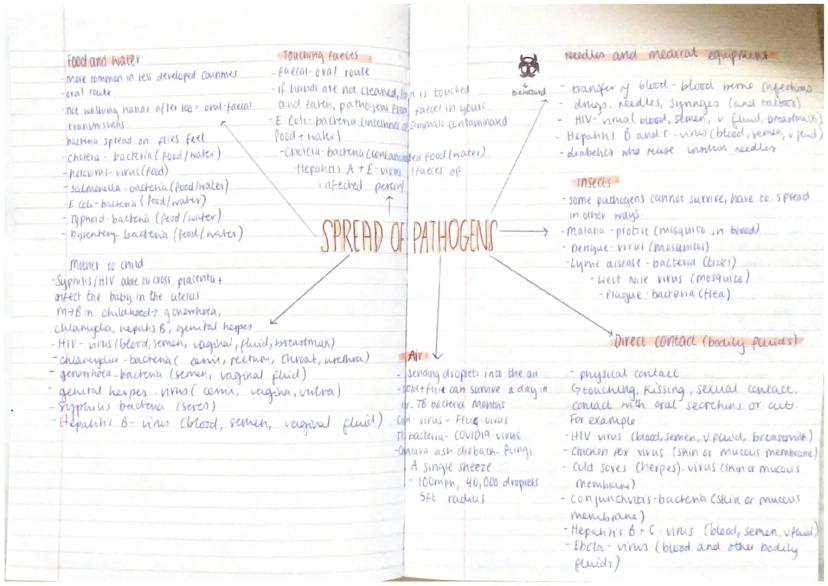 Food and water
- more common in less developed countries
- oral route
- not washing hands after loo = oral-faecal
transmission
bacteria spread on flies feet
- cholera - bacteria (food/water)
- virus (food)
- salmonella - bacteria (food/water)
E coli - bacteria (food/water)
- Typhoid - bacteria (food/water)
- Dysentery - bacteria (food/water)
Touching faeces
- faecal-oral route
- if hands are not cleaned, is touched
and eaten, pathogens from faeces in yours
- E Coli - bacteria animals contaminated
food + water)
- Cholera - bacteria (contaminated food/water)
- Hepatitis A + E - virus (faeces of
infected person)
biohazard
Needles and medical equipment
- transfer of blood - blood borne infections
- drugs, needles, syringes (and tattoos)
- HIV - virus (blood, semen, v fluid, breastmilk)
- Hepatitis B and C - virus (blood, semen, v fluid)
- diabetics who reuse insulin needles
Insects
- some pathogens cannot survive, have to spread
in other ways
- Malaria - protist (mosquito in blood)
- Dengue - virus (mosquitos)
- Lyme disease - bacteria (ticks)
- West Nile virus (mosquito)
- Plague - bacteria (flea)
SPREAD OF PATHOGENS
Mother to child
- Syphilis/HIV able to cross placenta +
infect the baby in the uterus
M→B in childbirth? gonorrhoea,
chlamydia, hepatitis B, genital herpes
- HIV - virus (blood, semen, vaginal fluid, breastmilk)
- chlamydia - bacteria (cervix, rectum, throat, urethra)
- gonorrhoea - bacteria (semen, vaginal fluid)
- genital herpes - virus (cervix, vagina, vulva)
- Syphilis bacteria (sores)
- Hepatitis B - virus (blood, semen, vaginal fluid)
Air
- sending droplets into the air
cold + flu can survive a day in
air. TB bacteria months
Cold - virus - Flu - virus
TB bacteria - COVID19 - virus
ash dieback - fungi
A single sneeze
- 100mph, 40,000 droplets
5ft radius
Direct contact (bodily fluids)
- physical contact
↳ touching, kissing, sexual contact,
contact with oral secretions or cuts.
For example
- HIV virus (blood, semen, v fluid, breastmilk)
- Chicken Pox virus (skin or mucous membrane)
- Cold sores (herpes) - virus (skin or mucous
membrane)
- Conjunctivitis - bacteria (skin or mucous
membrane)
- Hepatitis B + C - virus (blood, semen, v fluid)
- Ebola - virus (blood and other bodily
fluids)